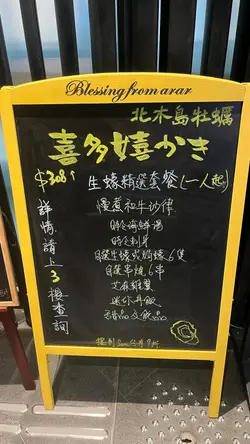 Blessing from arar
北木島牡蠣
喜多嬉かき
$308↑
生蠔精選套餐(一人起)
詳情請上3樓查詢
慢煮和牛沙律
時令海鮮湯
時令刺身
自選生蠔或焗蠔6隻
自選串燒6串
芝麻雞翼
迷你丼飯